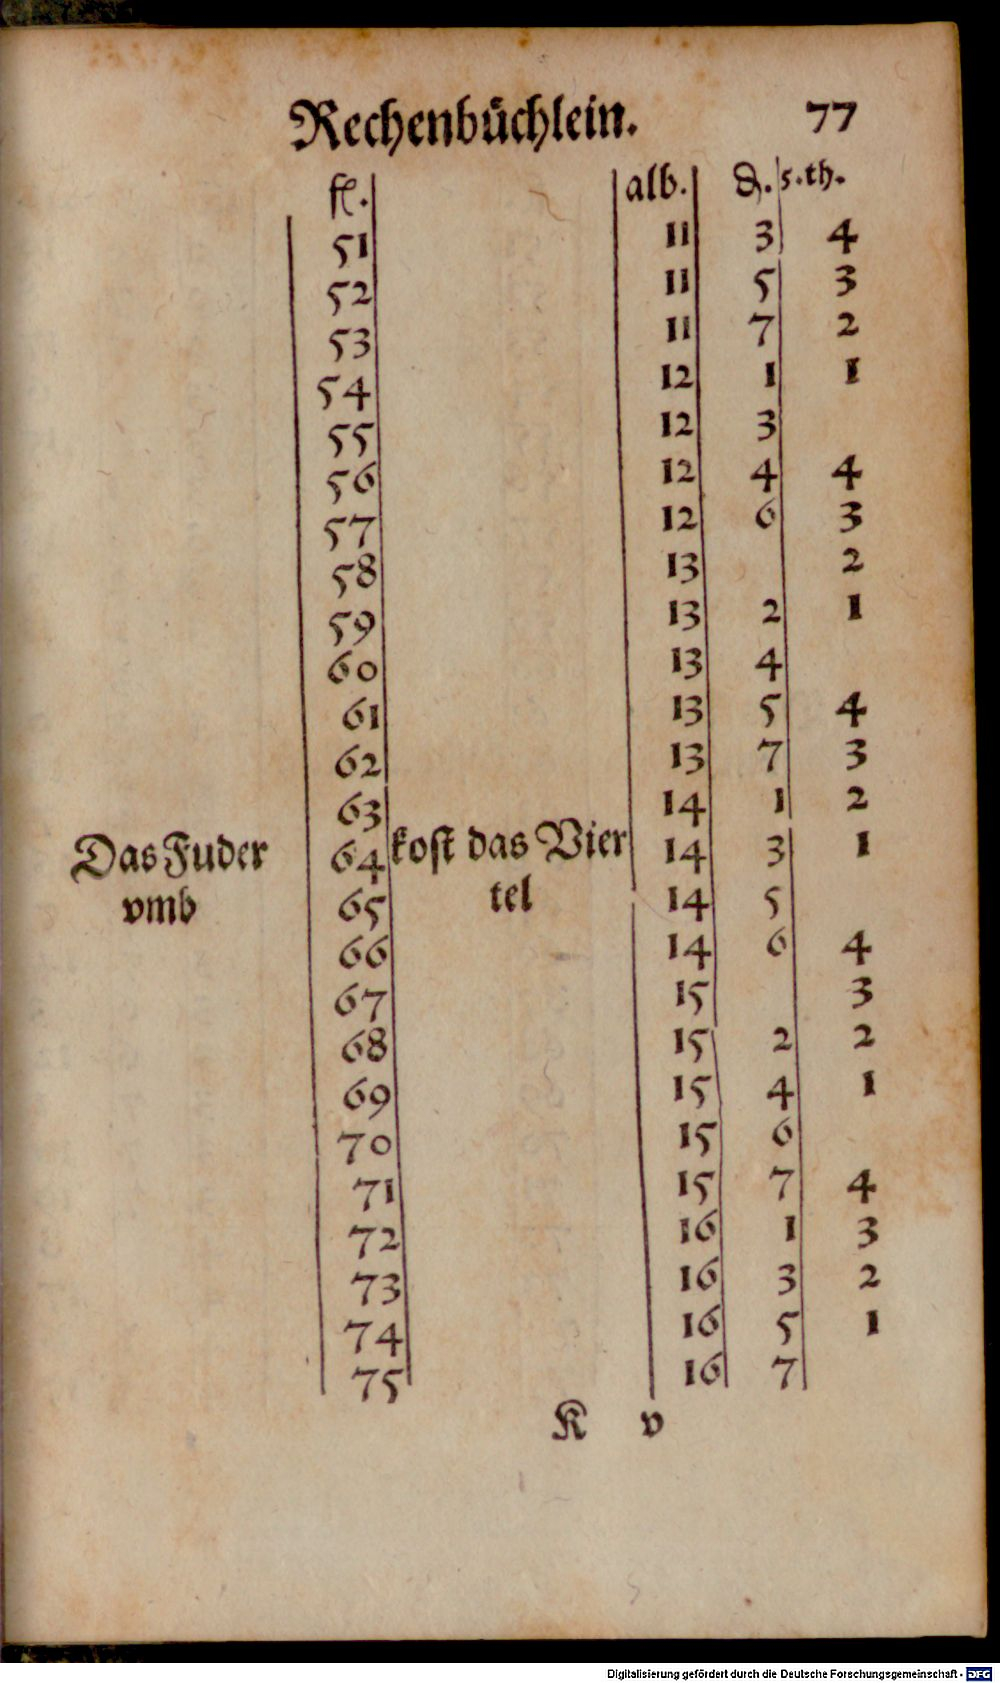 Rechenbüchlein. 77
fl. alb. ₰. 5.th.
51 11 3 4
52 11 5 3
53 11 7 2
54 12 1 1
55 12 3
56 12 4 4
57 12 6 3
58 13 2
59 13 2 1
60 13 4
61 13 5 4
62 13 7 3
63 14 1 2
Das Fuder 64 kost das Vier 14 3 1
vmb 65 tel 14 5
66 14 6 4
67 15 3
68 15 2 2
69 15 4 1
70 15 6
71 15 7 4
72 16 1 3
73 16 3 2
74 16 5 1
75 16 7
K v
Digitalisierung gefördert durch die Deutsche Forschungsgemeinschaft - DFG